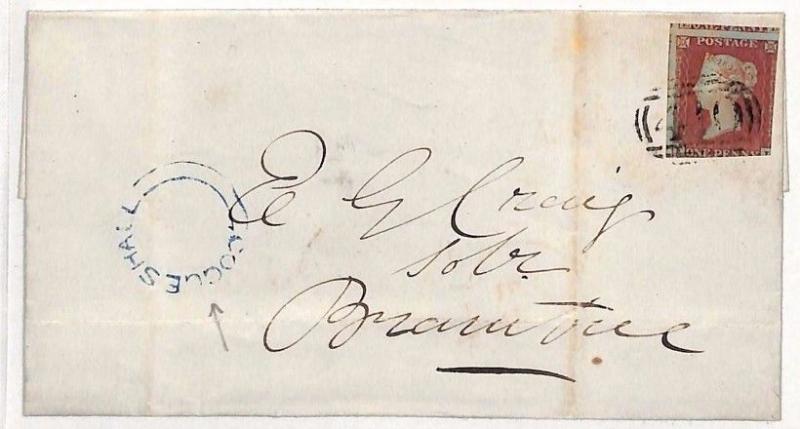 POSTAGE
ONE PENNY
COGGESHALL
E G Craig
Solr
Braintree